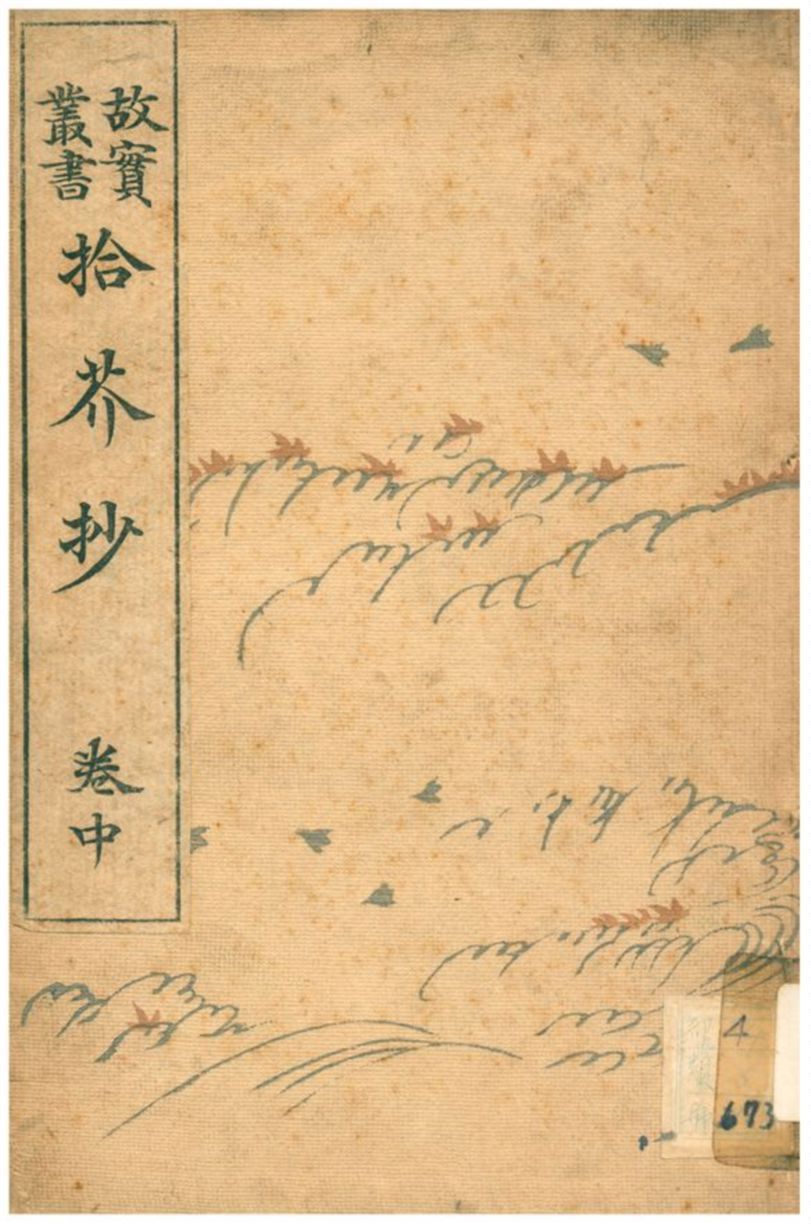 故實
叢書
拾芥抄
卷中
4
673